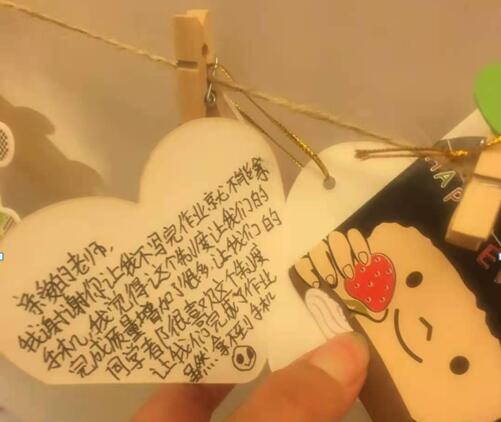 亲爱的老师,
我谢谢你让我不写完作业就不能拿
手机,我觉得这个制度让我们的
完成质量增加了很多,让我们的
同学都很喜欢这个制度
让我们完成了作业
虽然拿不到手机
HAP